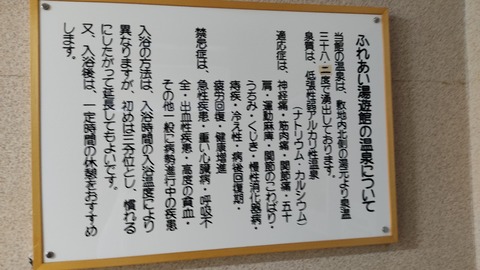 ふれあい湯遊館の温泉について
当館の温泉は、敷地内北側の湯元より泉温
三十八・二度で湧出しております。
泉質は、低張性弱アルカリ性温泉
（ナトリウム・カルシウム）
適応症は、神経痛・筋肉痛・関節痛・五十
肩・運動麻痺・関節のこわばり・
うちみ・くじき・慢性消化器病・
痔疾・冷え性・病後回復期・
疲労回復・健康増進
禁忌症は、急性疾患・重い心臓病・呼吸不
全・出血性疾患・高度の貧血・
その他一般に病勢進行中の疾患
入浴の方法は、入浴時間の入浴温度により
異なりますが、初めは三分位とし、慣れる
にしたがって延長してもよいです。
又、入浴後は、一定時間の休憩をおすすめ
します。